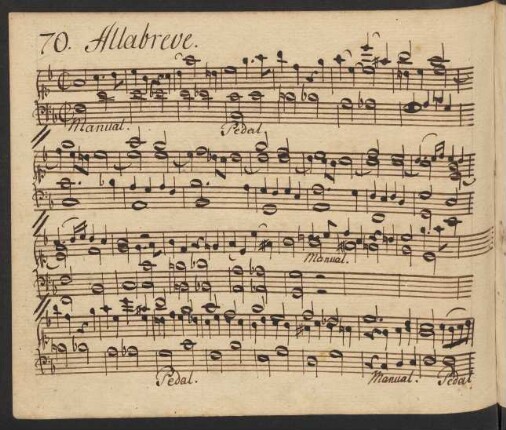 70. Allabreve.
Manual. Pedal
Manual.
Pedal. Manual. Pedal